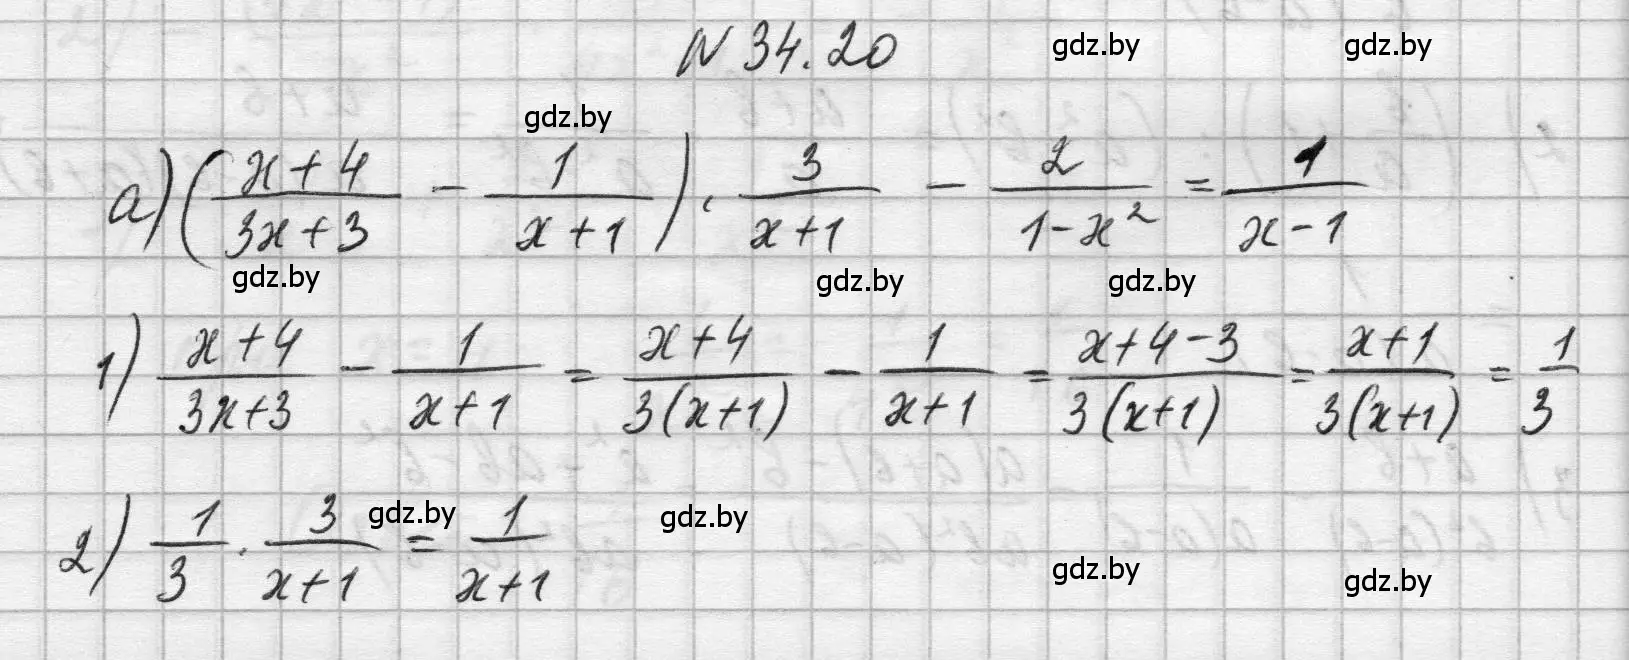 N 34.20
gdz.by gdz.by
gdz.by
а) ((x+4)/(3x+3) - 1/(x+1)) · 3/(x+1) - 2/(1-x²) = 1/(x-1)
gdz.by gdz.by gdz.by
1) (x+4)/(3x+3) - 1/(x+1) = (x+4)/(3(x+1)) - 1/(x+1) = (x+4-3)/(3(x+1)) = (x+1)/(3(x+1)) = 1/3
2) 1/3 · 3/(x+1) = 1/(x+1)
gdz.by gdz.by
gdz.by gdz.by